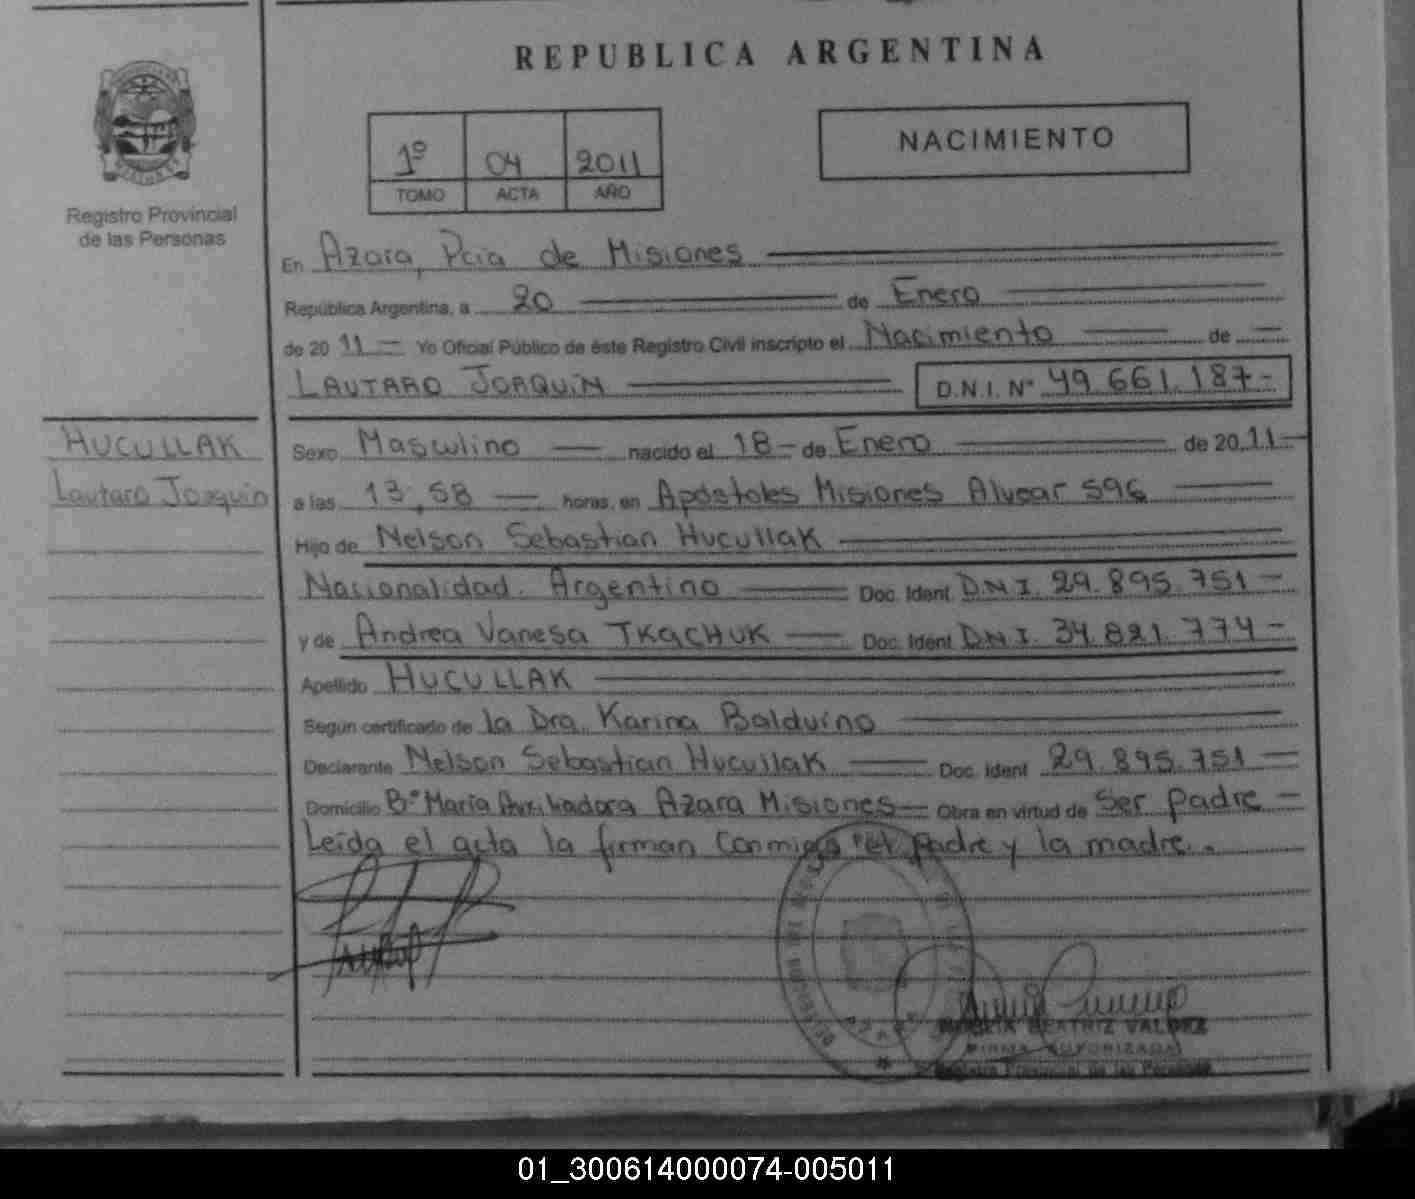 REPUBLICA ARGENTINA
1º 04 2011
TOMO ACTA AÑO
NACIMIENTO
MISIONES
Registro Provincial
de las Personas
En Azara, Pcia de Misiones
República Argentina, a 20 de Enero
de 2011 Yo Oficial Público de éste Registro Civil inscripto el Nacimiento de
LAUTARO JOAQUIN D.N.I. Nº 49.661.187-
HUCULLAK
Lautaro Joaquin
Sexo Masculino nacido el 18 - de Enero de 2011-
a las 13,58 horas, en Apóstoles Misiones Alvear 596
Hijo de Nelson Sebastian Hucullak
Nacionalidad. Argentino Doc. Ident. D.N.I. 29.895.751-
y de Andrea Vanesa TKACHUK Doc. Ident. D.N.I. 34.821.774-
Apellido HUCULLAK
Según certificado de la Dra. Karina Balduino
Declarante Nelson Sebastian Hucullak Doc. Ident 29.895.751
Domicilio Bº María Auxiliadora Azara Misiones Obra en virtud de Ser padre
Leída el acta la firman Conmigo el padre y la madre.
BEATRIZ VALDEZ
FIRMA AUTORIZADA
Registro Provincial de las Personas
01_300614000074-005011